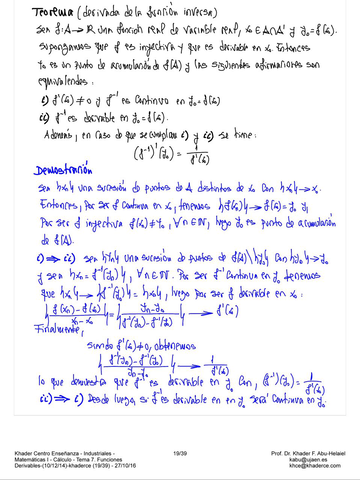 Teorema (derivada de la función inversa)
Sea f: A → R una función real de variable real, x₀ ∈ A∩A' y y₀ = f(x₀).
Supongamos que f es inyectiva y que es derivable en x₀. Entonces
y₀ es un punto de acumulación de f(A) y las siguientes afirmaciones son
equivalentes:
i) f'(x₀) ≠ 0 y f⁻¹ es continua en y₀ = f(x₀)
ii) f⁻¹ es derivable en y₀ = f(x₀).
Además, en caso de que se cumplan i) y ii) se tiene:
(f⁻¹)'(y₀) = 1/f'(x₀)
Demostración
Sea {xₙ} una sucesión de puntos de A distintos de x₀ con {xₙ} → x₀.
Entonces, por ser f continua en x₀, tenemos {f(xₙ)} → f(x₀) = y₀ y,
por ser f inyectiva f(xₙ) ≠ y₀, ∀n∈N, luego y₀ es punto de acumulación
de f(A).
i) ⟹ ii) Sea {yₙ} una sucesión de puntos de f(A)\{y₀} con {yₙ} → y₀
y sea {xₙ = f⁻¹(yₙ)}, ∀n∈N. Por ser f⁻¹ continua en y₀ tenemos
que {xₙ} → {f⁻¹(y₀)} = {x₀}, luego por ser f derivable en x₀:
{(f(xₙ)-f(x₀))/(xₙ-x₀)} = {(yₙ-y₀)/(f⁻¹(yₙ)-f⁻¹(y₀))} → f'(x₀)
Finalmente,
siendo f'(x₀) ≠ 0, obtenemos
{(f⁻¹(yₙ)-f⁻¹(y₀))/(yₙ-y₀)} → 1/f'(x₀)
lo que demuestra que f⁻¹ es derivable en y₀ con, (f⁻¹)'(y₀) = 1/f'(x₀)
ii) ⟹ i) Desde luego, si f⁻¹ es derivable en en y₀ será continua en y₀.
Khader Centro Enseñanza - Industriales -
Matemáticas I - Cálculo - Tema 7. Funciones
Derivables-(10/12/14)-khaderce (19/39) - 27/10/16
19/39
Prof. Dr. Khader F. Abu-Helaiel
kabu@ujaen.es
khce@khaderce.com